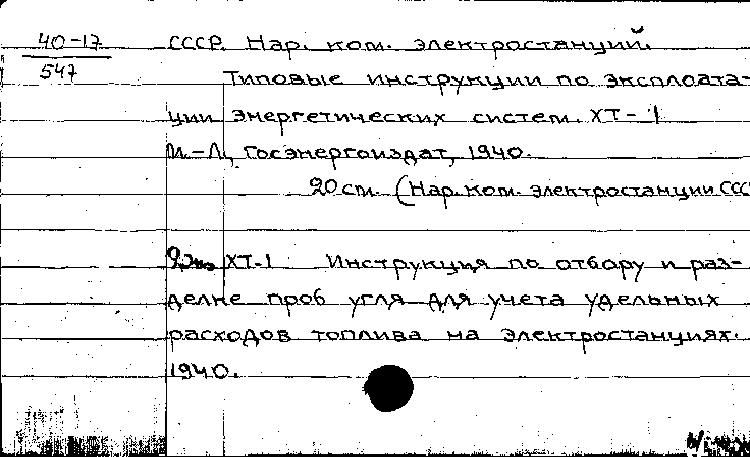 40-17
547
СССР. Нар. ком. электростанций.
Типовые инструкции по эксплоата-
ции энергетических систем. ХТ-1
М.-Л., Госэнергоиздат, 1940.
20 см. (Нар. ком. электростанции ССС
ХТ-1 Инструкция по отбору и раз-
делке проб угля для учета удельных
расходов топлива на электростанциях.
1940.